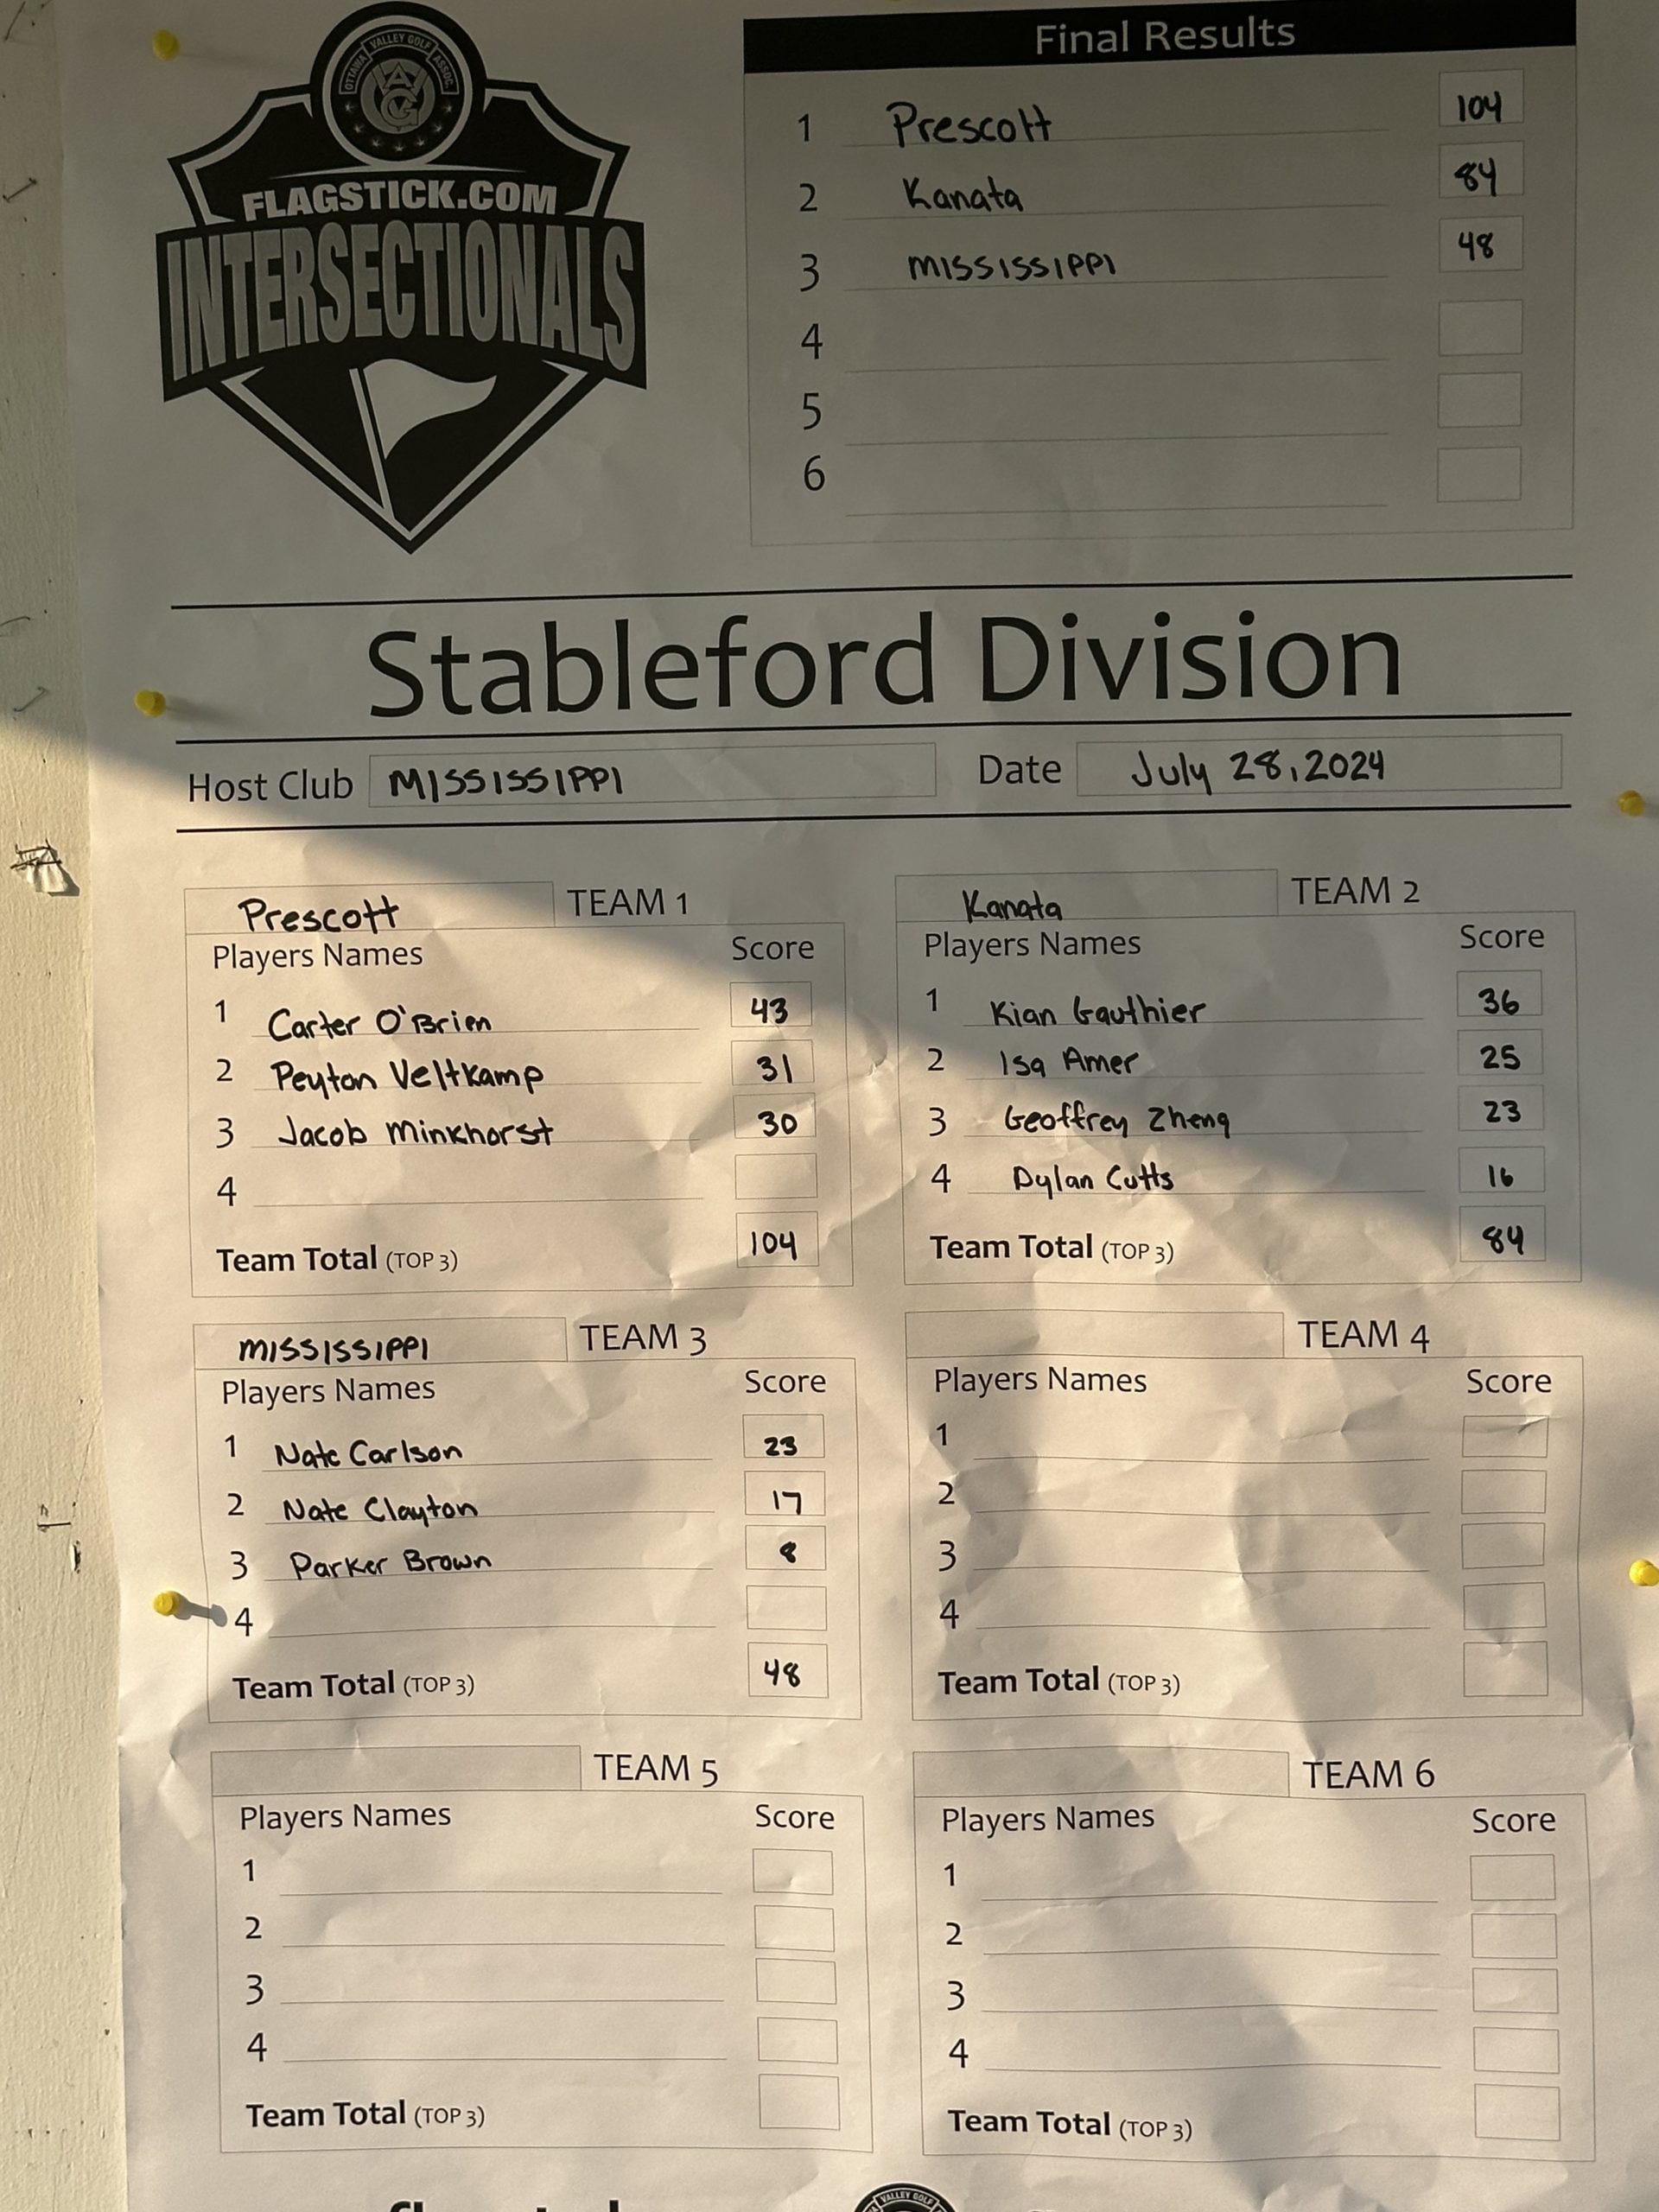 OTTAWA VALLEY GOLF ASSOC.
FLAGSTICK.COM
INTERSECTIONALS
Final Results
1 Prescott 104
2 Kanata 84
3 MISSISSIPPI 48
4
5
6
Stableford Division
Host Club MISSISSIPPI Date July 28, 2024
Prescott TEAM 1
Players Names Score
1 Carter O'Brien 43
2 Peyton Veltkamp 31
3 Jacob Minkhorst 30
4
Team Total (TOP 3) 104
Kanata TEAM 2
Players Names Score
1 Kian Gauthier 36
2 Isa Amer 25
3 Geoffrey Zheng 23
4 Dylan Cutts 16
Team Total (TOP 3) 84
MISSISSIPPI TEAM 3
Players Names Score
1 Nate Carlson 23
2 Nate Clayton 17
3 Parker Brown 8
4
Team Total (TOP 3) 48
TEAM 4
Players Names Score
1
2
3
4
Team Total (TOP 3)
TEAM 5
Players Names Score
1
2
3
4
Team Total (TOP 3)
TEAM 6
Players Names Score
1
2
3
4
Team Total (TOP 3)
VALLEY GOLF